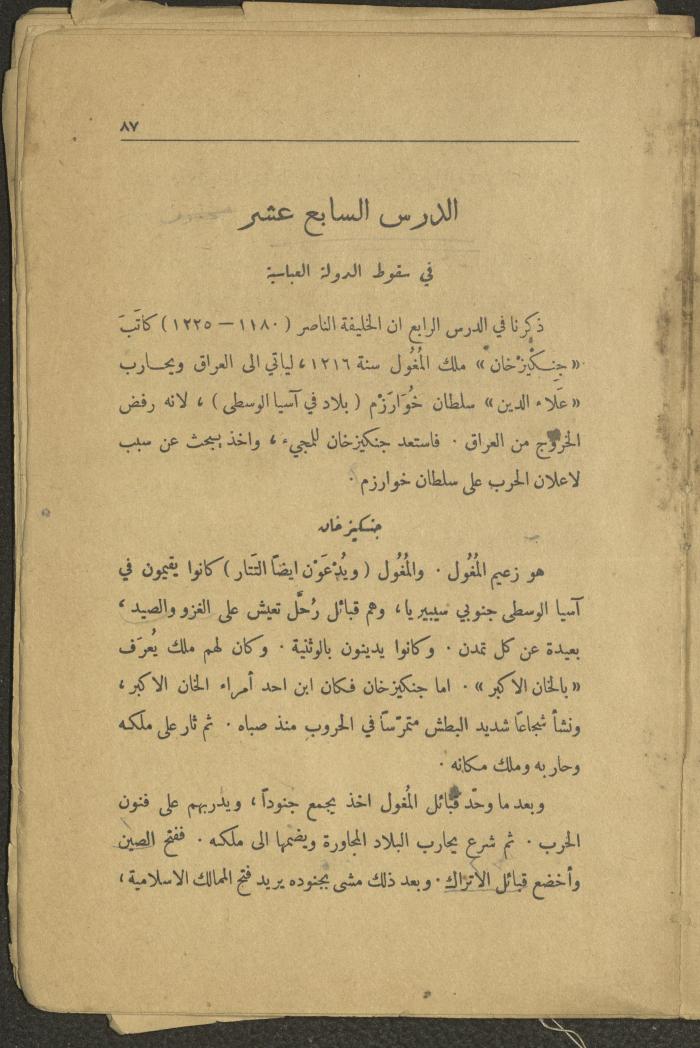 ٨٧
الدرس السابع عشر
في سقوط الدولة العباسية
ذكرنا في الدرس الرابع ان الخليفة الناصر ( ١١٨٠ — ١٢٢٥ ) كاتَبَ
« جِنكْيزْخان » ملك المُغُول سنة ١٢١٦ ، لياتي الى العراق ويحارب
« عَلاء الدين » سلطان خُوَارَزْم ( بلاد في آسيا الوسطى ) ، لانه رفض
الخروج من العراق . فاستعد جنكيزخان للمجيء ، واخذ يبحث عن سبب
لاعلان الحرب على سلطان خوارزم .
جنكيز خان
هو زعيم المُغُول . والمُغُول ( ويُدْعَوْن ايضاً التَتار ) كانوا يقيمون في
آسيا الوسطى جنوبي سيبيريا ، وهم قبائل رُحَّل تعيش على الغزو والصيد ،
بعيدة عن كل تمدن . وكانوا يدينون بالوثنية . وكان لهم ملك يُعرَف
« بالخان الاكبر » . اما جنكيزخان فكان ابن احد أمراء الخان الاكبر ،
ونشأ شجاعًا شديد البطش متمرّسًا في الحروب منذ صباه . ثم ثار على ملكه
وحاربه وملك مكانه .
وبعد ما وحّد قبائل المُغول اخذ يجمع جنوداً ، ويدربهم على فنون
الحرب . ثم شرع يحارب البلاد المجاورة ويضمها الى ملكه . ففتح الصين
وأخضع قبائل الاتراك . وبعد ذلك مشى بجنوده يريد فتح الممالك الاسلامية ،